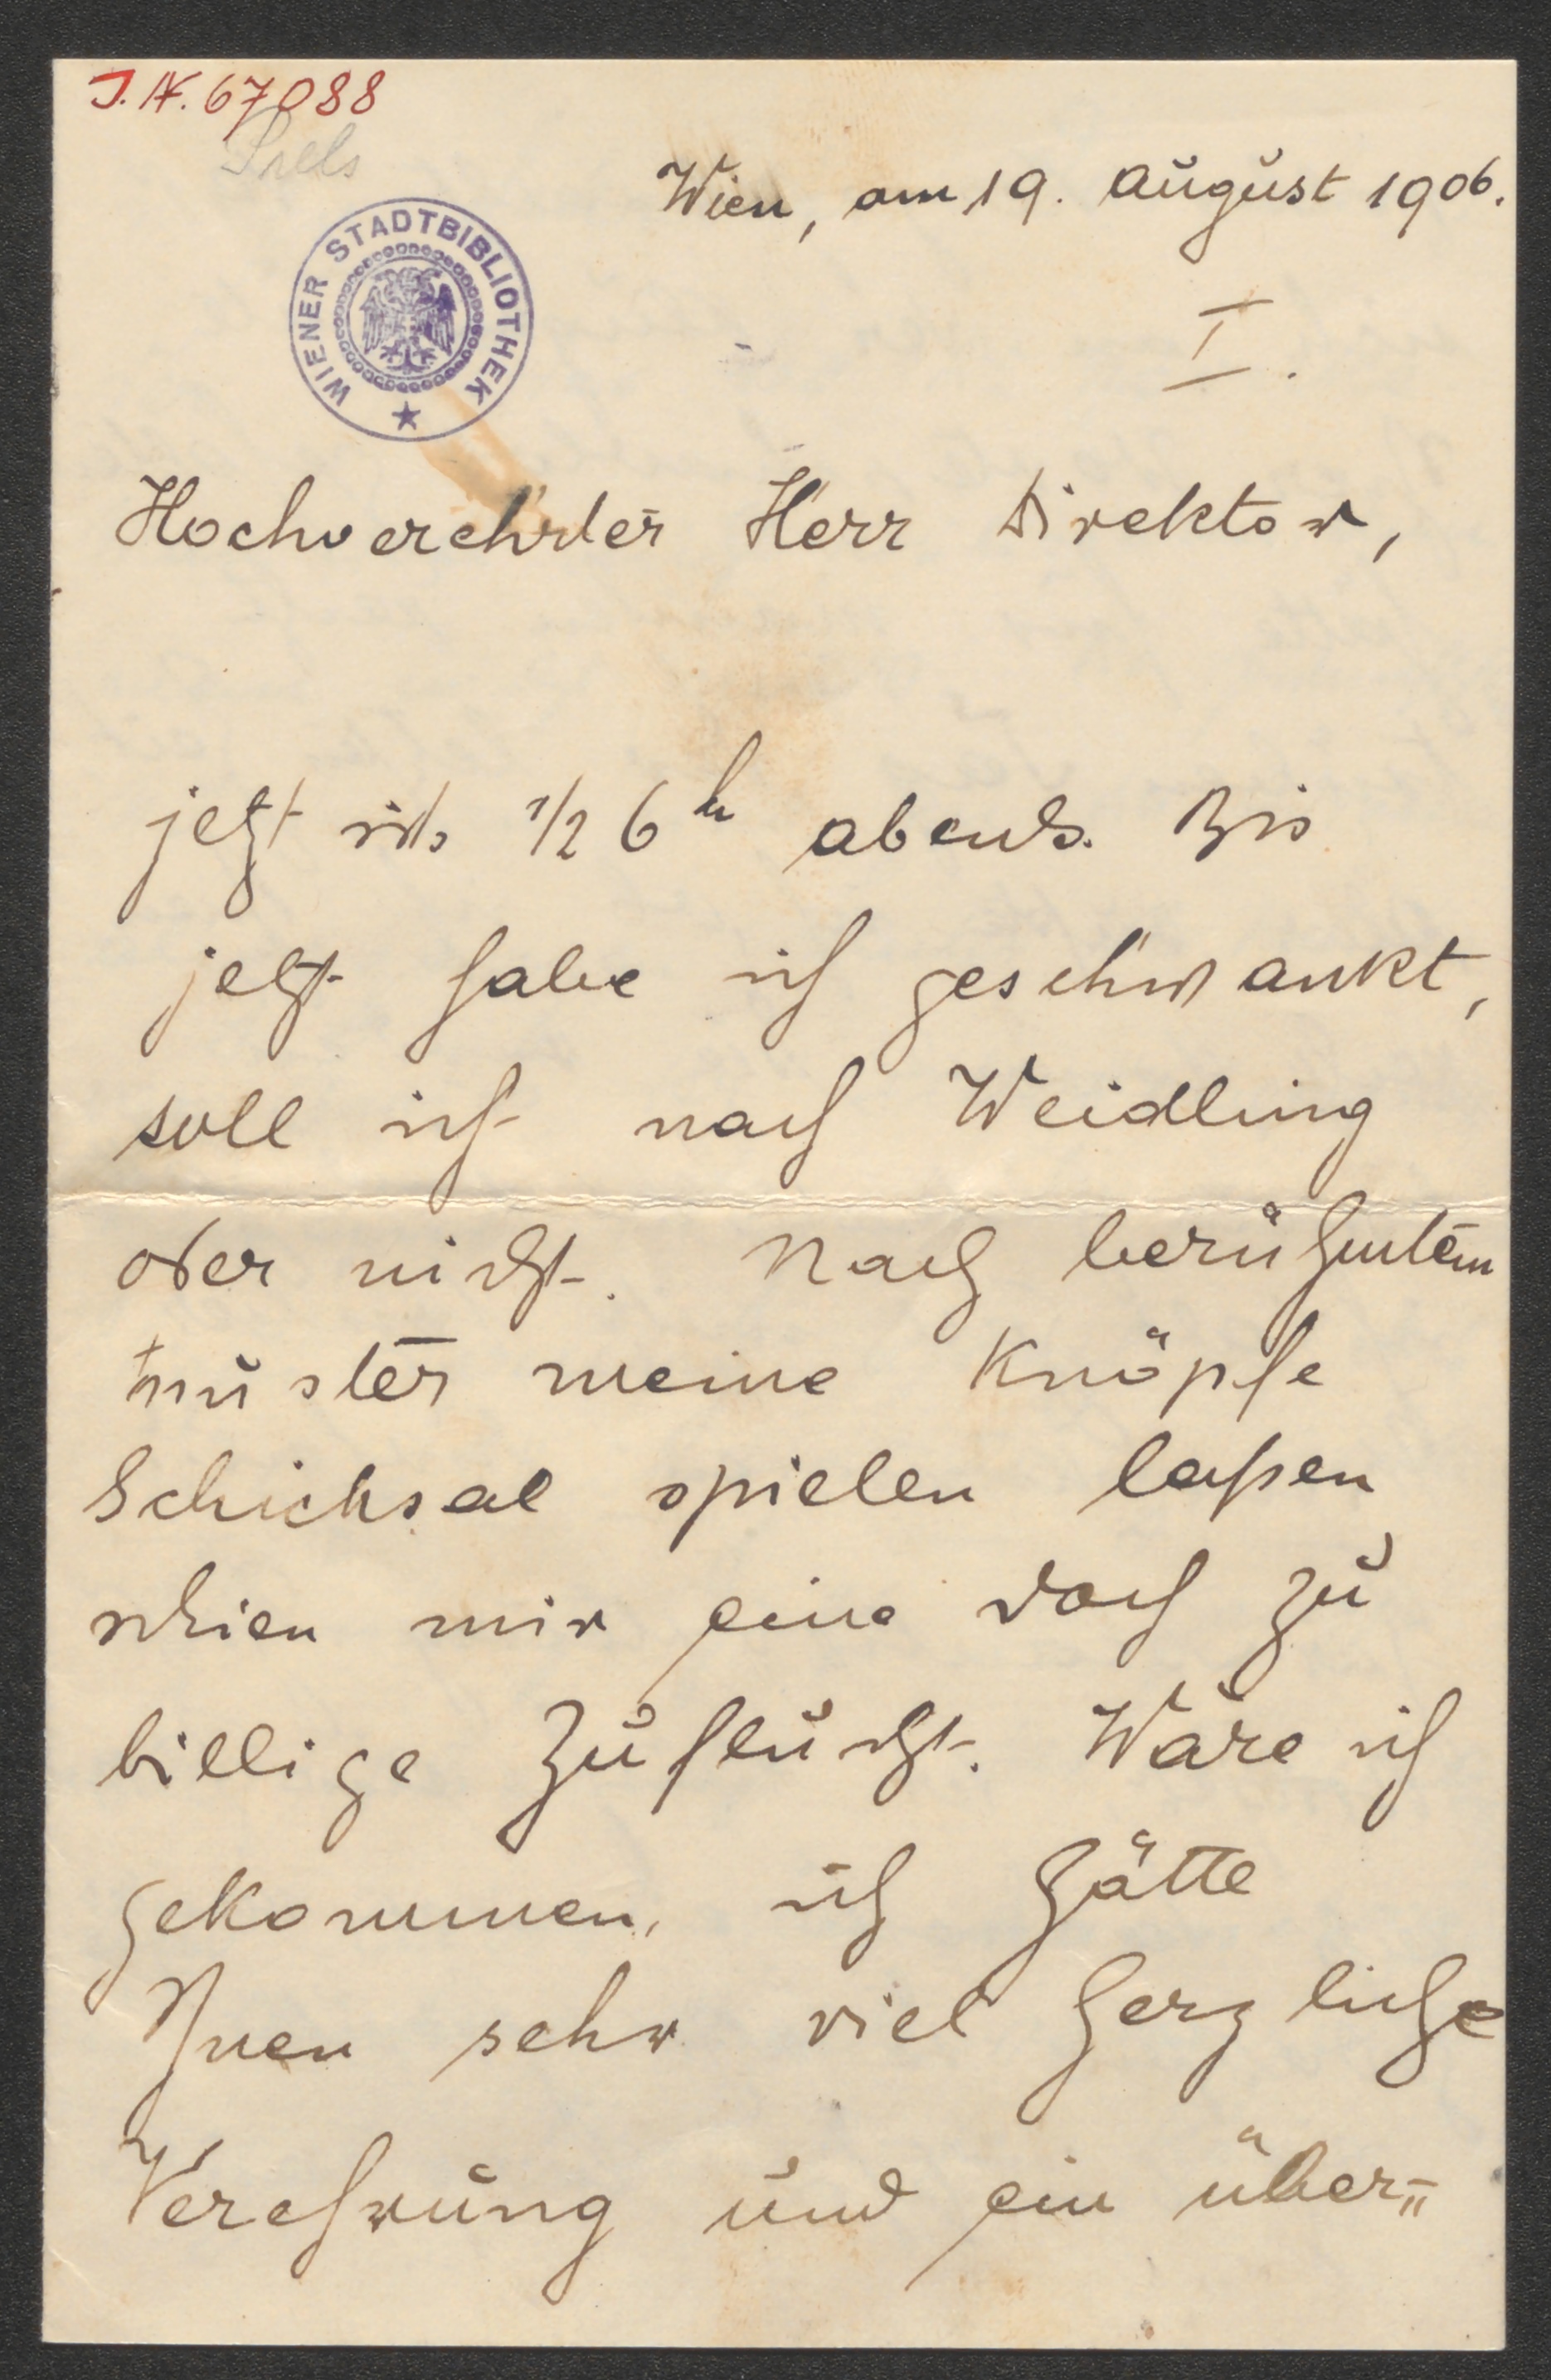 J.N. 67088
Wien, am 19. August 1906.
WIENER STADTBIBLIOTHEK
I.
Hochverehrter Herr Direktor,
jetzt ists 1/2 6h abends. Bis
jetzt habe ich geschwankt,
soll ich nach Weidling
oder nicht. Nach berühmtem
Muster meine Knöpfe
Schicksal spielen laßen
schien mir eine doch zu
billige Zuflucht. Wäre ich
gekommen, ich hätte
Ihnen sehr viel herzliche
Verehrung und ein über=